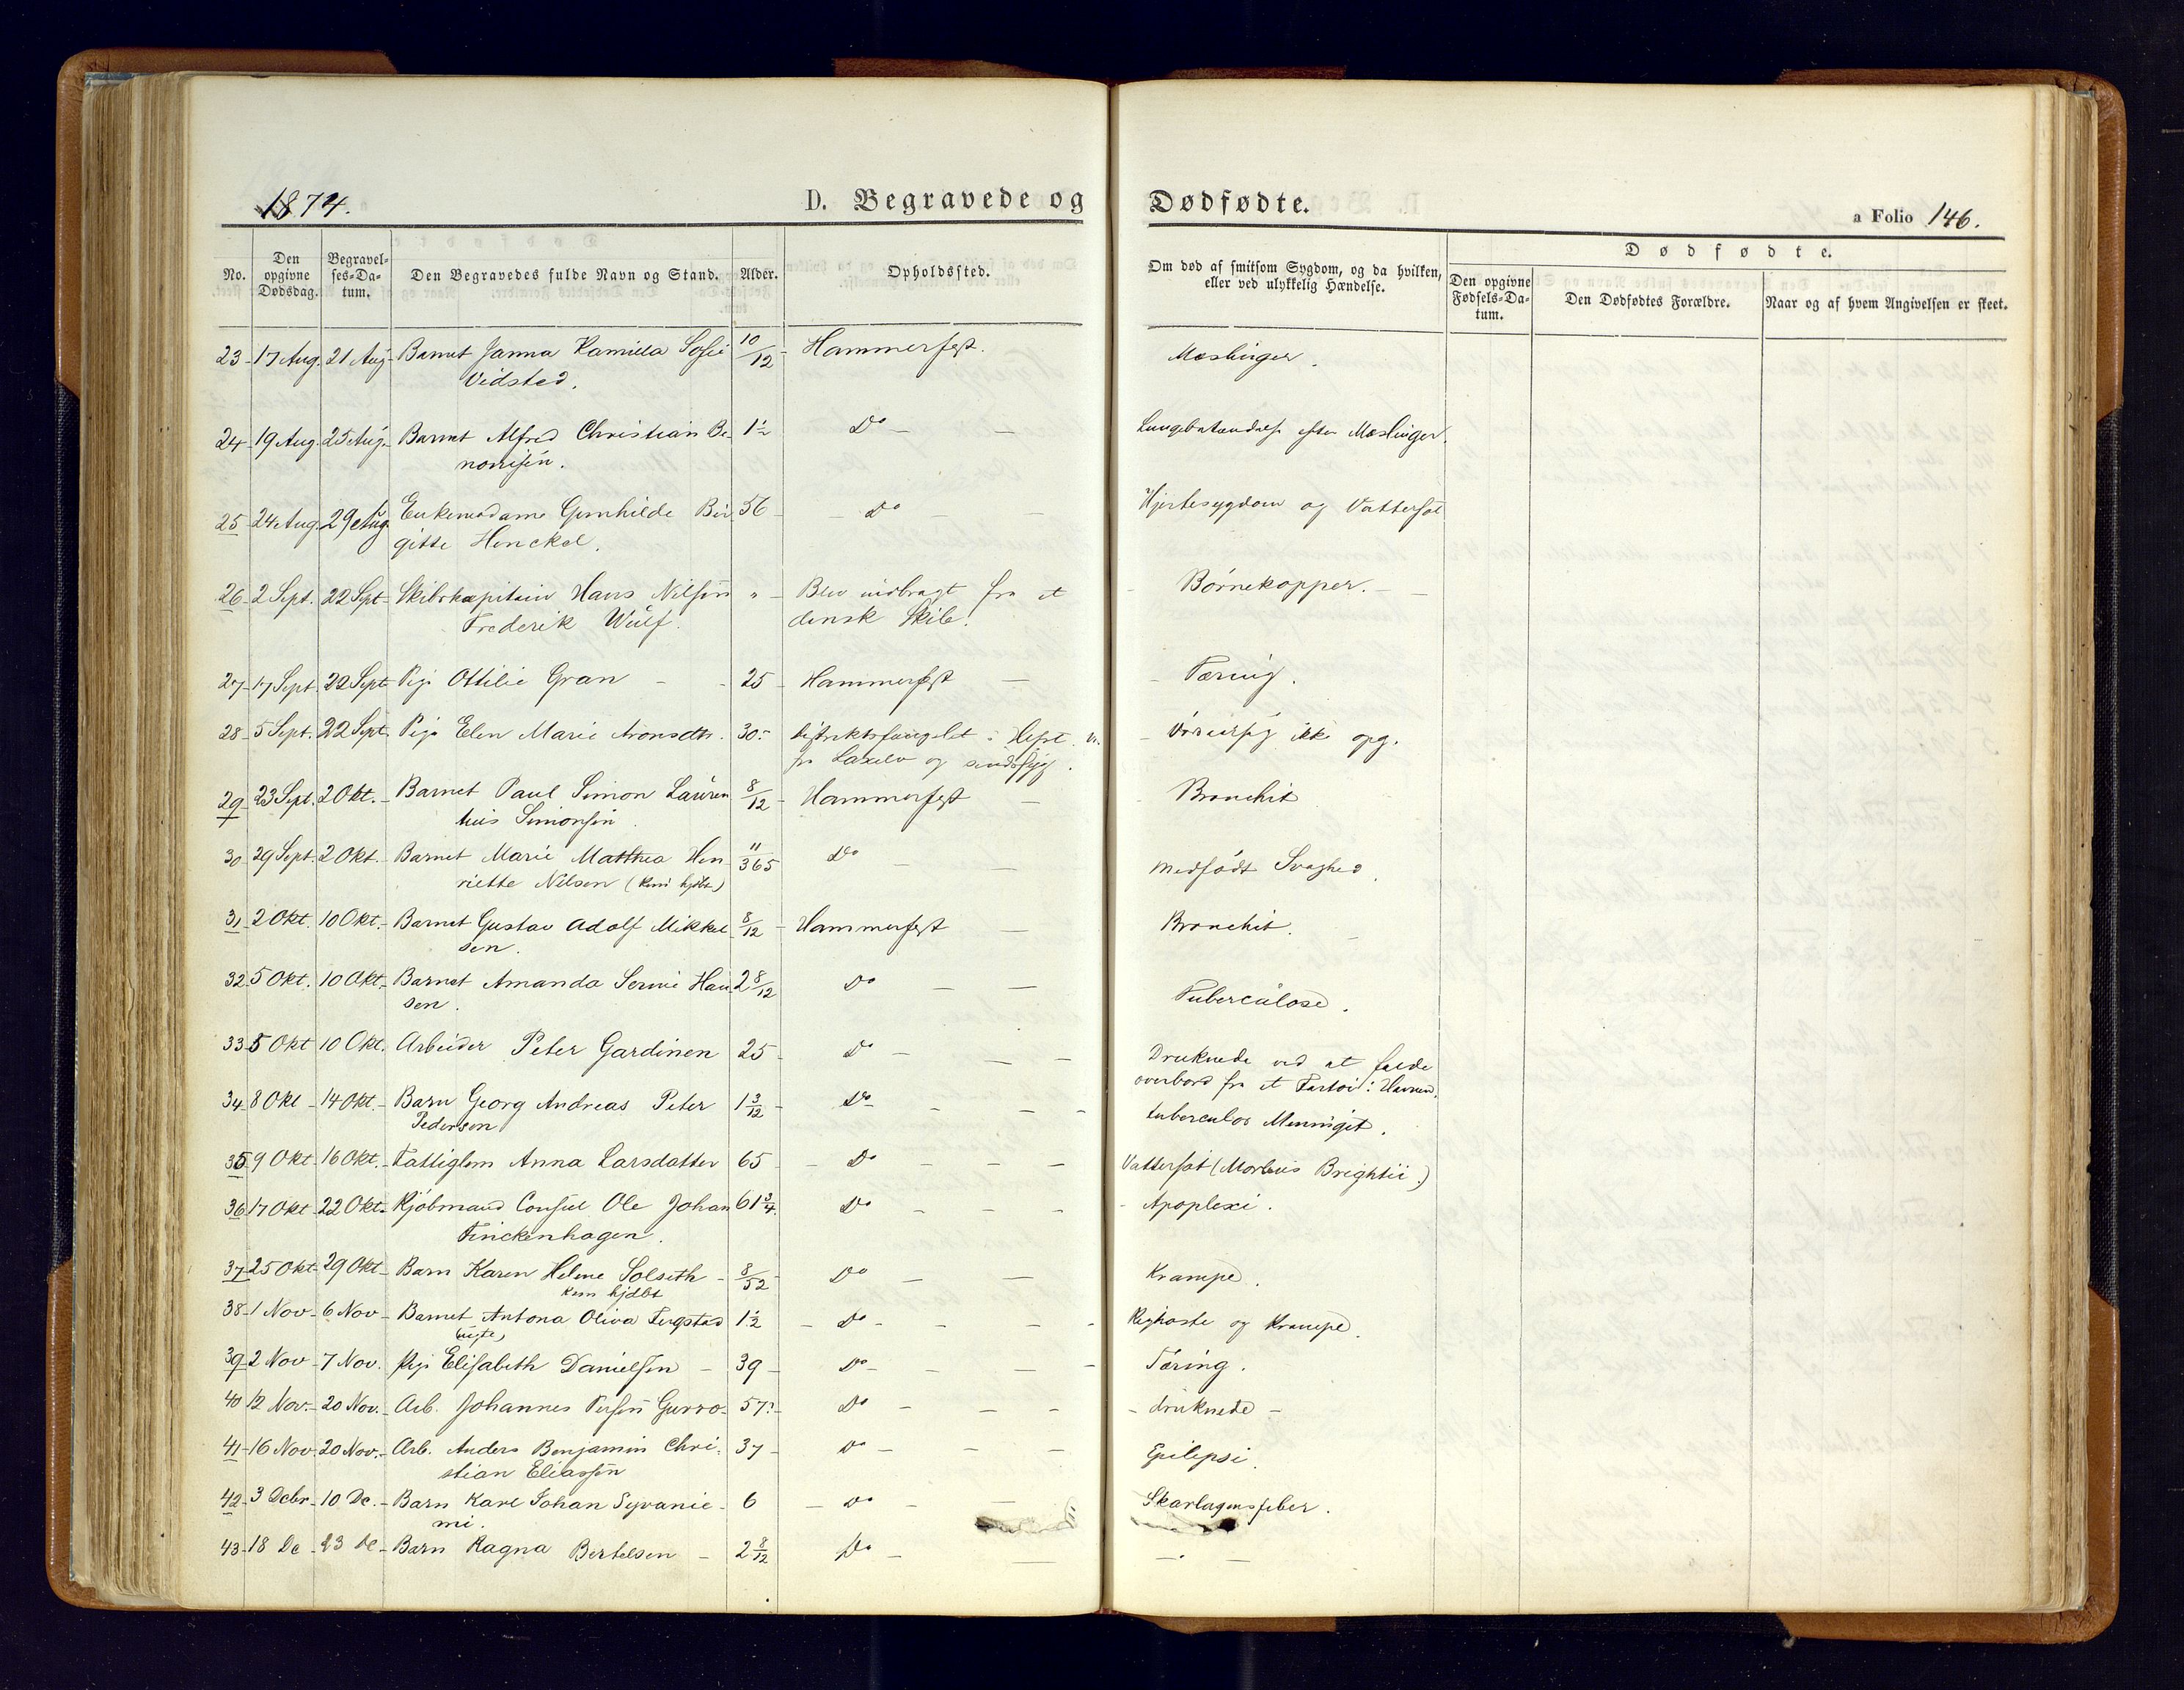 1874.
D. Begravede og
Dødfødte.
a Folio 146.
No.
Den opgivne Dødsdag.
Begravel-ses-Da-tum.
Den Begravedes fulde Navn og Stand.
Alder.
Opholdssted.
Om død af smitsom Sygdom, og da hvilken, eller ved ulykkelig Hændelse.
Dødfødte.
Den opgivne Fødsels-Da-tum.
Den Dødfødtes Forældre.
Naar og af hvem Angivelsen er skeet.
23 - 17 Aug. 21 Aug - Barnet Janna Kamilla Sofie 10/12 - Hammerfest. Mæslinger.
Vidsted.
24 - 19 Aug. 25 Aug. - Barnet Alfred Christian Be- 1½ Do - - Lungebetændelse efter Mæslinger.
nonisen.
25 - 24 Aug. 29 Aug. Enkemadame Gunhilde Bir 56 - - Do - - Hjertesygdom og Vattersot
gitte Henckel.
26 - 2 Sept. 22 Sept - Skibskapitain Hans Nilsen " - Blev indbragt fra et - Børnekopper. - -
Frederik Wulf. dansk Skib.
27 - 17 Sept. 22 Sept - Pige Ottilie Gran - - 25 - Hammerfest - - Tæring.
28 - 5 Sept. 22 Sept. Pige Elen Marie Aronsdtr. 30 - distriktsfængslet i Hfst. - ikke opg.
fra Laxelv og sindssyg.
29 - 23 Sept. 2 Okt. - Barnet Paul Simon Lauren 8/12 - Hammerfest - Bronchit
tius Simonsen.
30 29 Sept. 2 Okt. - Barnet Marie Matthea Hen 11/365 Do - - Medfødt Svaghed.
riette Nilsen (hjdbt)
31 2 Okt. 10 Okt. - Barnet Gustav Adolf Mikkel 8/12 - Hammerfest - Bronchit. -
sen.
32 5 Okt. 10 Okt. - Barnet Amanda Han 2 8/12 Do - - Tuberculose.
sen.
33 5 Okt 10 Okt. Arbeider Peter Gardinen 25 - Do - - - Druknede ved at falde
overbord fra et Fartøi i Havnen.
34 8 Okt - 14 Okt. - Barn Georg Andreas Peter 1 3/12 - Do - - - tuberculøs Meningit.
Pedersen
35 9 Okt - 16 Okt. - Fattiglem Anna Larsdatter 65 - - Do - - - Vattersot (Morbus Brightii.)
36 17 Okt - 22 Okt. Kjøbmand Consul Ole Johan 61¾. Do - - - - Apoplexi.
Finckenhagen.
37 25 Okt - 29 Okt - Barn Karen Helene Solseth - 8/52 - Do - - Krampe.
hjdbt
38 - 1 Nov - 6 Nov - Barnet Antona Oliva 1½ - Do - - - - Kighoste og Krampe.
(uægte)
39 2 Nov - 7 Nov. Pige Elisabeth Danielsen - 39 - Do - - - - Tæring.
40 12 Nov. - 20 Nov. - Arb. Johannes Persen 57 - Do - - - - druknede -
41 - 16 Nov. 20 Nov. - Arb. Anders Benjamin Chri- 37 - Do - - - Epilepsi.
stian Eliassen
42 - 3 Debr - 10 De. - Barn Karl Johan Syvanie- 6 - Do - - Skarlagensfeber.
mi.
43 - 18 De - 23 De - Barn Ragna Bertelsen - 2 8/12 Do - - - " -